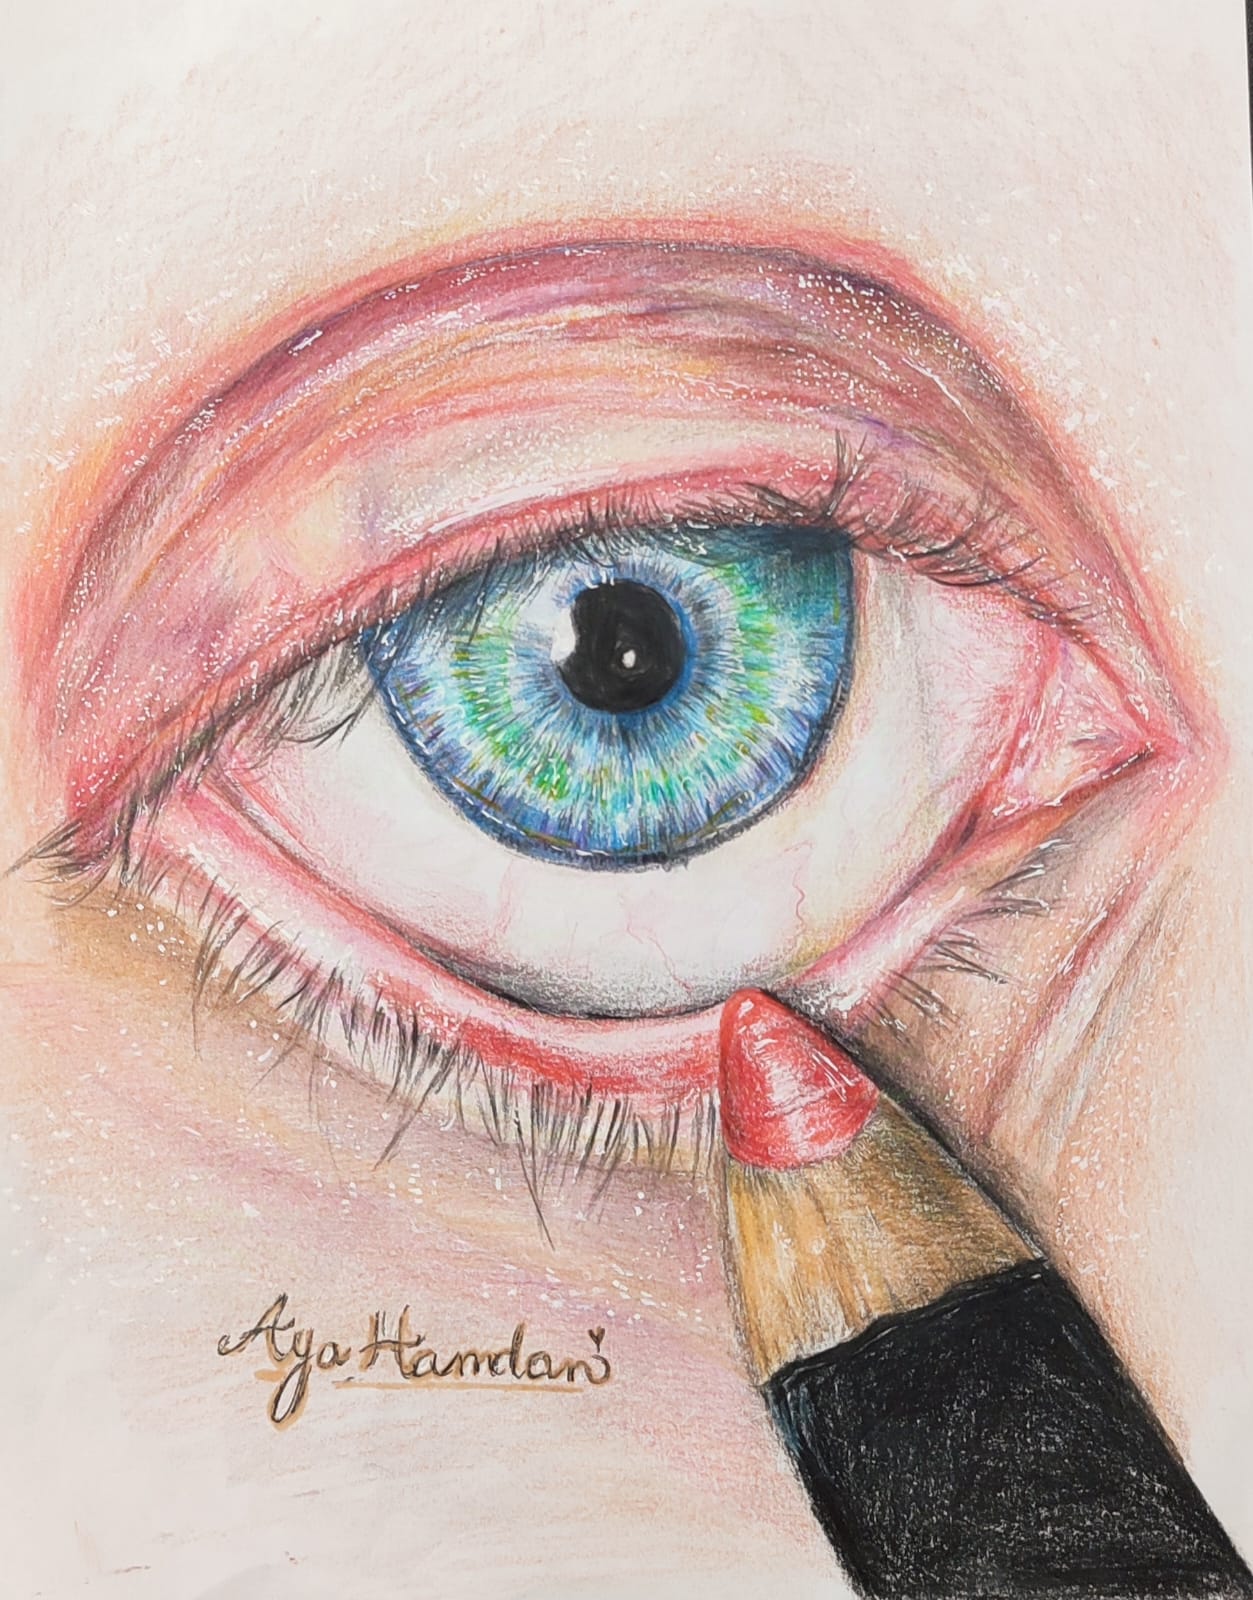 Aya Hamdan